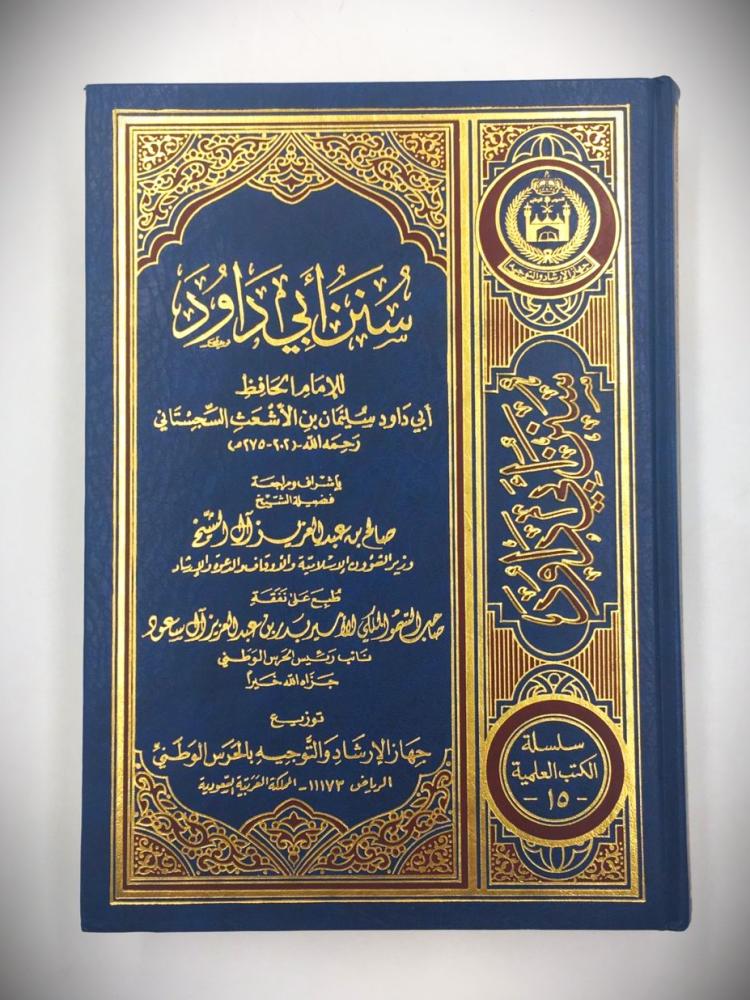 سُنَنُ أَبِي دَاوُد
للإمَامِ الحَافِظِ
أَبِي دَاوُد سُلَيْمَان بنِ الأَشْعَثِ السِّجِسْتَانِي
رَحِمَهُ اللهُ - (٢٠٢-٢٧٥هـ)
بإشراف ومراجعة
فضيلة الشيخ
صالح بن عبد العزيز آل الشيخ
وزير الشؤون الإسلامية والأوقاف والدعوة والإرشاد
طُبِعَ عَلَى نَفَقَةِ
صاحب السُّمُوِّ الملكي الأمير بدر بن عبد العزيز آل سعود
نائب رئيس الحرس الوطني
جَزَاهُ اللهُ خَيرًا
توزيع
جهاز الإرشاد والتَّوجيه بالحَرَس الوَطَني
الرياض ١١١٧٣ - المملكة العربية السعودية
جهاز الإرشاد والتوجيه
سُنَنُ أَبِي دَاوُد
سلسلة
الكتب العلمية
- ١٥ -